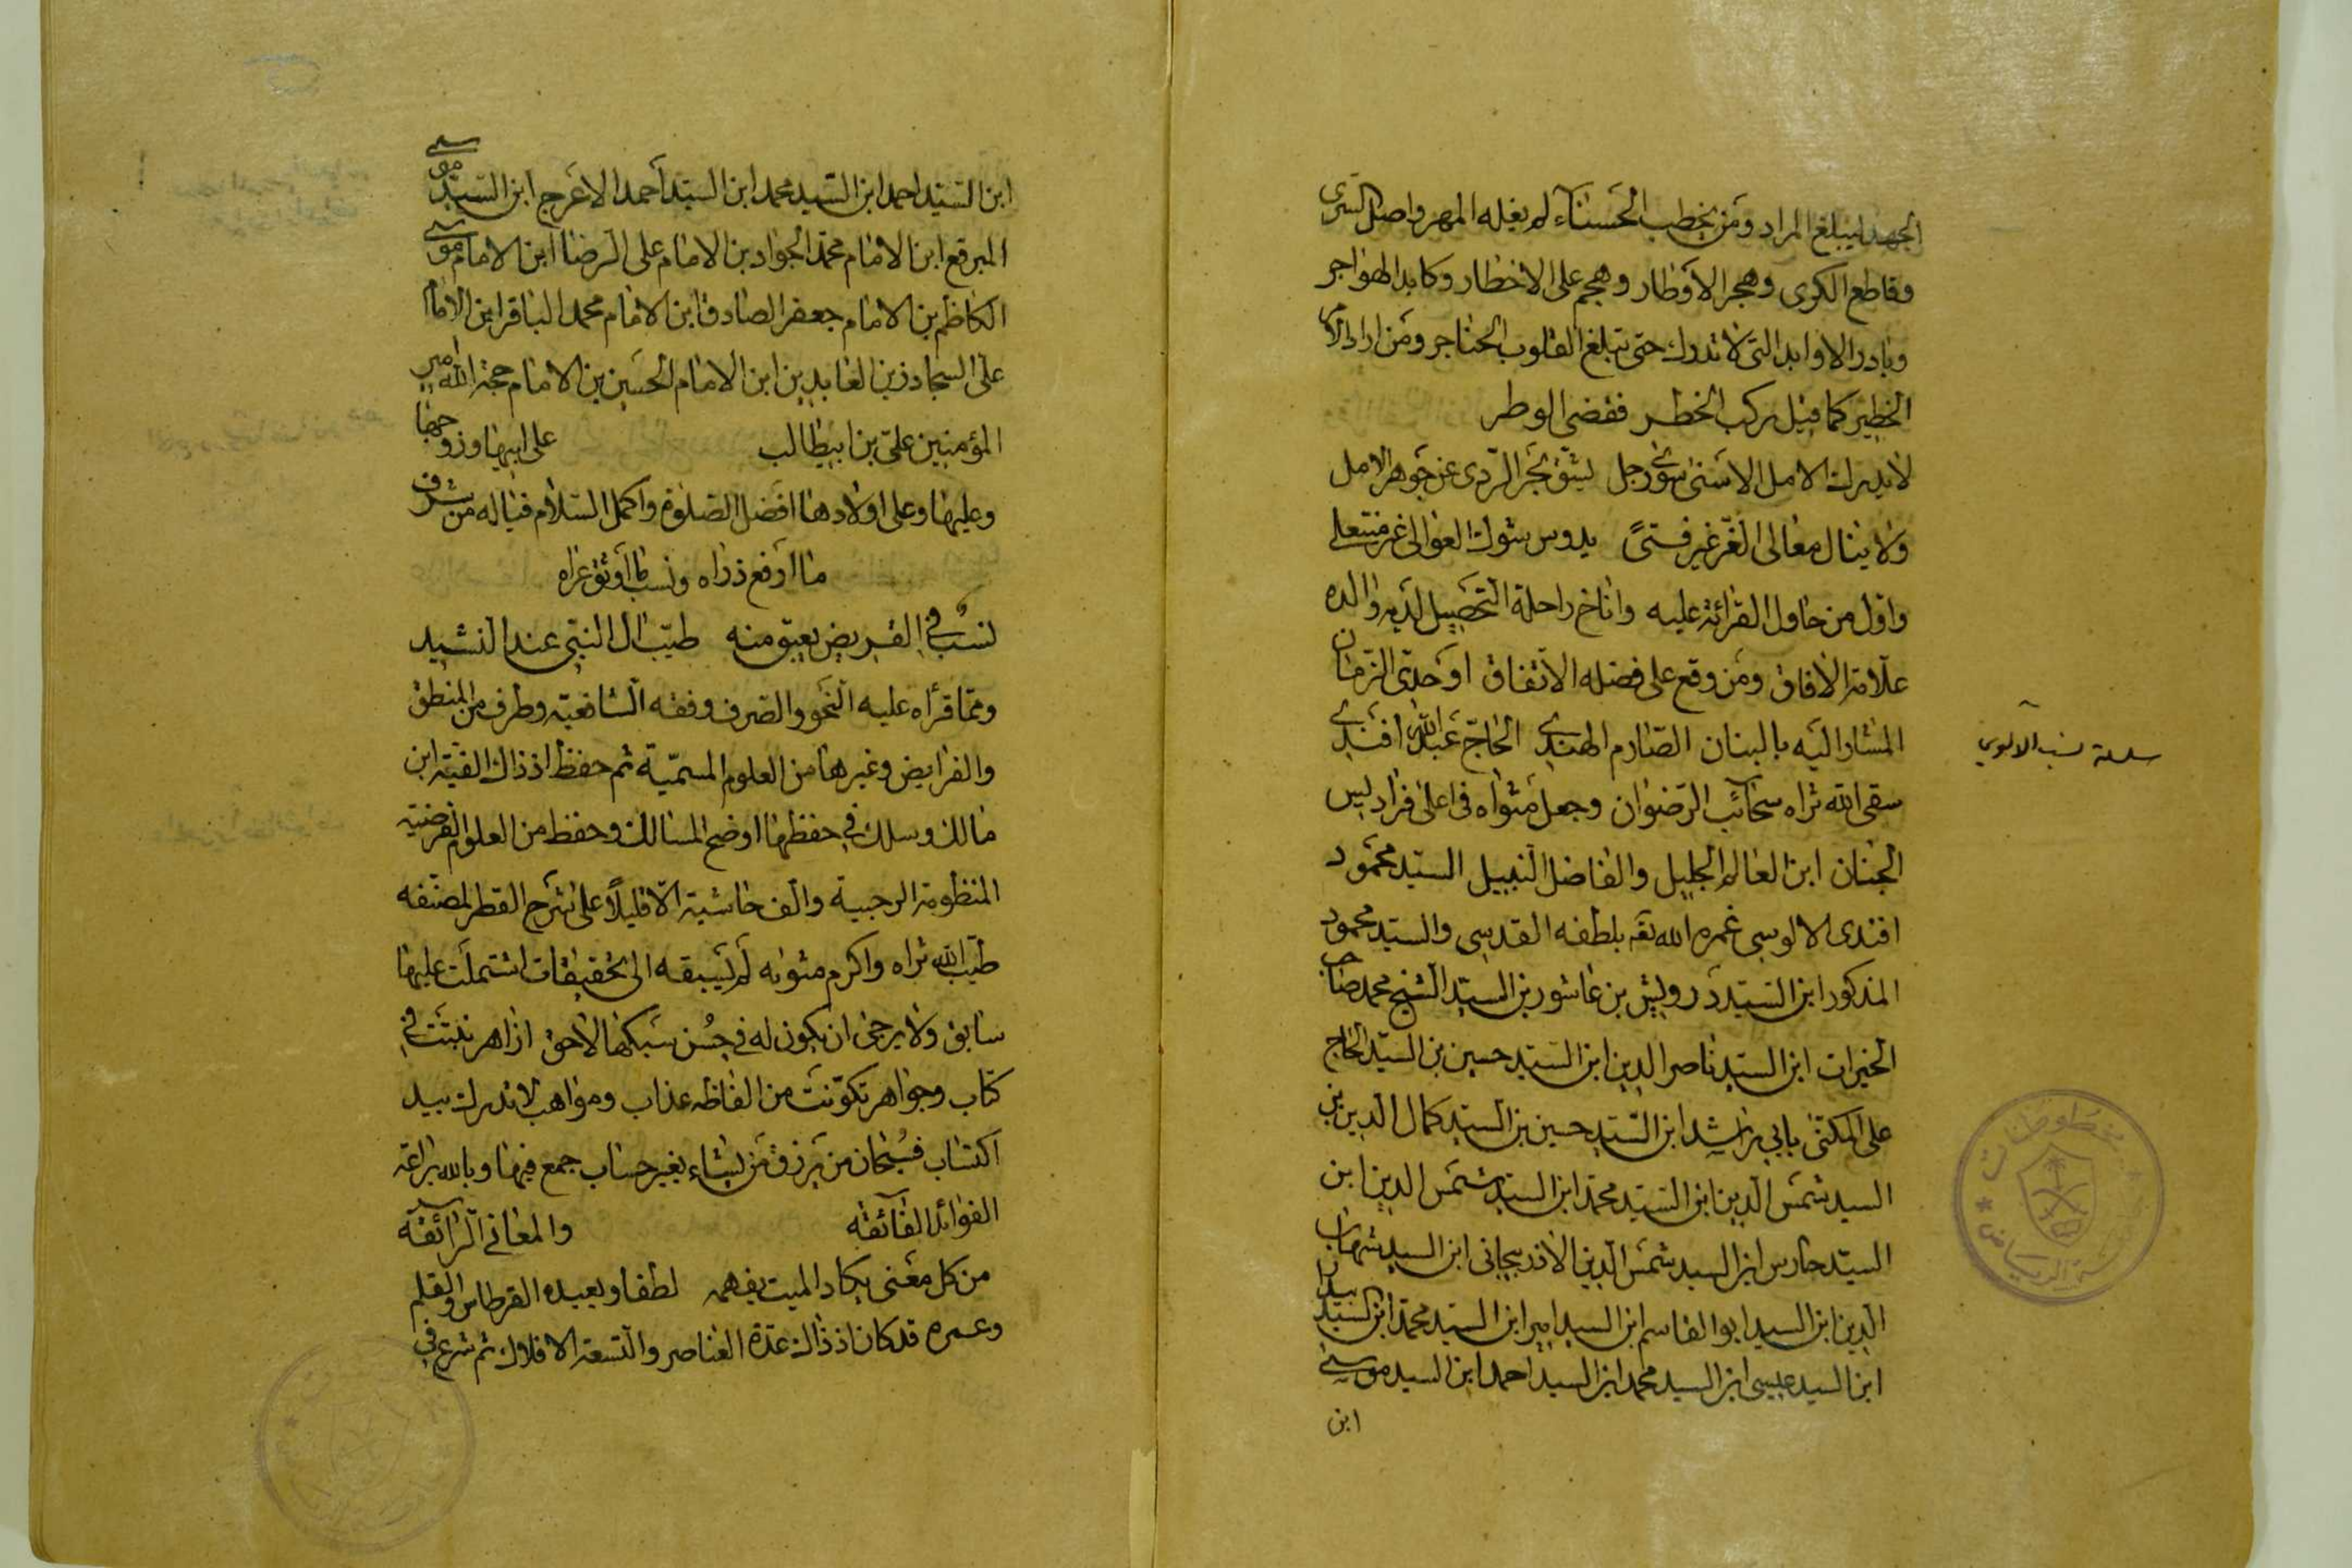 الجهد ليبلغ المراد ومن يخطب الحسناء لم يغله المهر واصل السرى
وقاطع الكرى وهجر الاوطار وهجم على الاخطار وكابد الهواجر
وبادر الاوابد التى لا تدرك حتى تبلغ القلوب الحناجر ومن اراد الامر
الخطير كما قيل يركب الخطر فقضى الوطر
لا يدرك الامل الاسنى سوى رجل يشق بحر الردى عن جوهر الامل
ولا ينال معالى الغر غير فتىً يدوس شوك العوالى غير منتعل
واول من حاول القرائة عليه واناخ راحلة التحصيل لديه والده
علامة الافاق ومن وقع على فضله الاتفاق اوحدى الزمان
المشار اليه بالبنان الصارم الهندى الحاج عبد الله افندى
سقى الله ثراه سحائب الرضوان وجعل مثواه فى اعلى فراديس
الجنان ابن العالم الجليل والفاضل النبيل السيد محمود
افندى الالوسى غمره الله تعه بلطفه القدسى والسيد محمود
المذكور ابن السيد درويش بن عاشور بن السيد الشيخ محمد صاحب
الخيرات ابن السيد ناصر الدين ابن السيد حسين بن السيد الحاج
على المكنى بابي راشد ابن السيد حسين بن السيد كمال الدين بن
السيد شمس الدين ابن السيد محمد ابن السيد شمس الدين ابن
السيد حارس ابن السيد شمس الدين الاذربيجانى ابن السيد شهاب
الدين ابن السيد ابو القاسم ابن السيد امير ابن السيد محمد ابن السيد
ابن السيد عيسى ابن السيد محمد ابن السيد احمد ابن السيد موسى
ابن
سلسلة نسب الآلوسي
ابن السيد احمد ابن السيد محمد ابن السيد احمد الاعرج ابن السيد موسى
المبرقع ابن الامام محمد الجواد بن الامام على الرضا ابن الامام موسى
الكاظم بن الامام جعفر الصادق ابن الامام محمد الباقر ابن الامام
على السجاد زين العابدين ابن الامام الحسين بن الامام حجة الله امير
المؤمنين على بن ابيطالب على ابيها وزوجها
وعليها وعلى اولادها افضل الصلوة واكمل السلام فياله من شرف
ما ارفع ذراه ونسب ما اوثق عراه
نسب فى القريض يعبق منه طيب ال النبى عند النشيد
ومما قرأه عليه النحو والصرف وفقه الشافعية وطرف من المنطق
والفرايض وغيرها من العلوم المسمية ثم حفظ اذ ذاك الفية ابن
مالك وسلك فى حفظها اوضح المسالك وحفظ من العلوم الفرضية
المنظومة الرحبية والف حاشية الا قليلاً على شرح القطر لمصنفه
طيب الله ثراه واكرم مثواه لم يسبقه الى تحقيقات اشتملت عليها
سابق ولا يرجى ان يكون له فى حسن سبكها لاحق ازاهر نبتت فى
كتاب وجواهر تكونت من الفاظه عذاب ومواهب لا تدرك بيد
اكتساب فسبحان من يرزق من يشاء بغير حساب جمع فيها وبالله براعة
الفوائد الفائقه والمعانى الرائقه
من كل معنى يكاد الميت يفهمه لطفا ويعبده القرطاس والقلم
وعمره قد كان اذ ذاك عدة العناصر والتسعة الافلاك ثم شرع فى